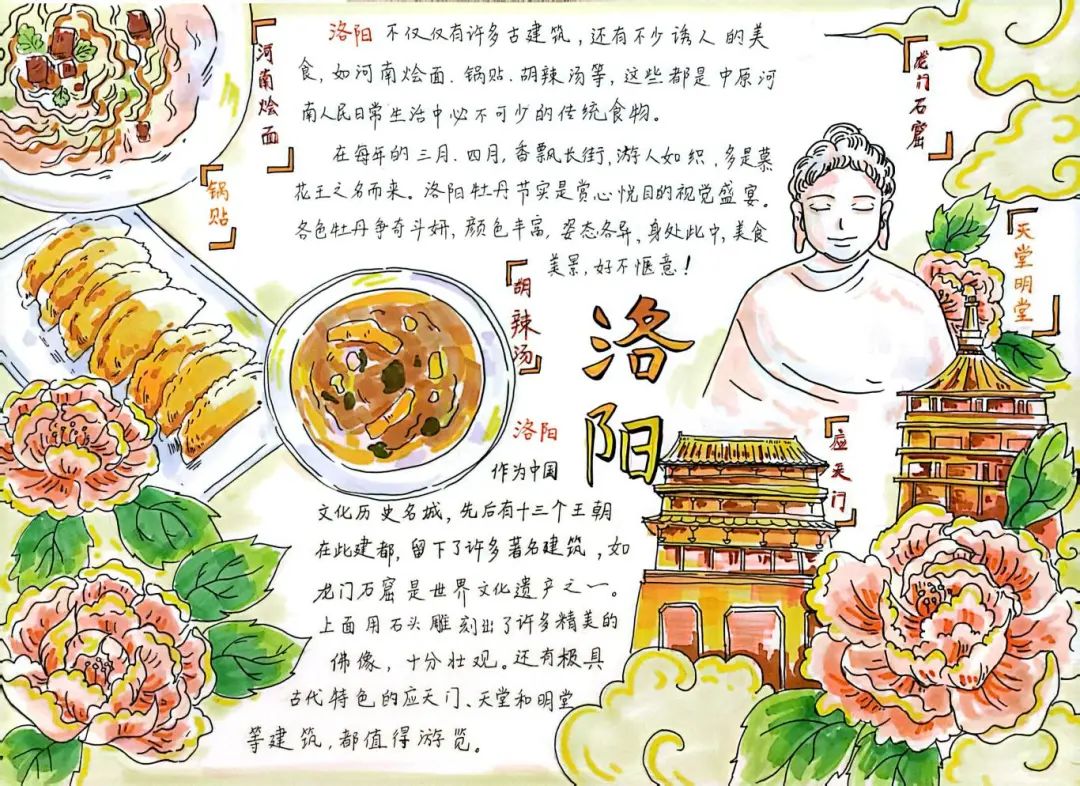 洛阳不仅仅有许多古建筑,还有不少诱人的美
食,如河南烩面、锅贴、胡辣汤等,这些都是中原河
南人民日常生活中必不可少的传统食物。
在每年的三月、四月,香飘长街,游人如织,多是慕
花王之名而来。洛阳牡丹节实是赏心悦目的视觉盛宴。
各色牡丹争奇斗妍,颜色丰富,姿态各异,身处此中,美食
美景,好不惬意!
河南烩面
锅贴
胡辣汤
龙门石窟
天堂明堂
应天门
洛阳
洛阳
作为中国
文化历史名城,先后有十三个王朝
在此建都,留下了许多著名建筑,如
龙门石窟是世界文化遗产之一。
上面用石头雕刻出了许多精美的
佛像,十分壮观。还有极具
古代特色的应天门、天堂和明堂
等建筑,都值得游览。